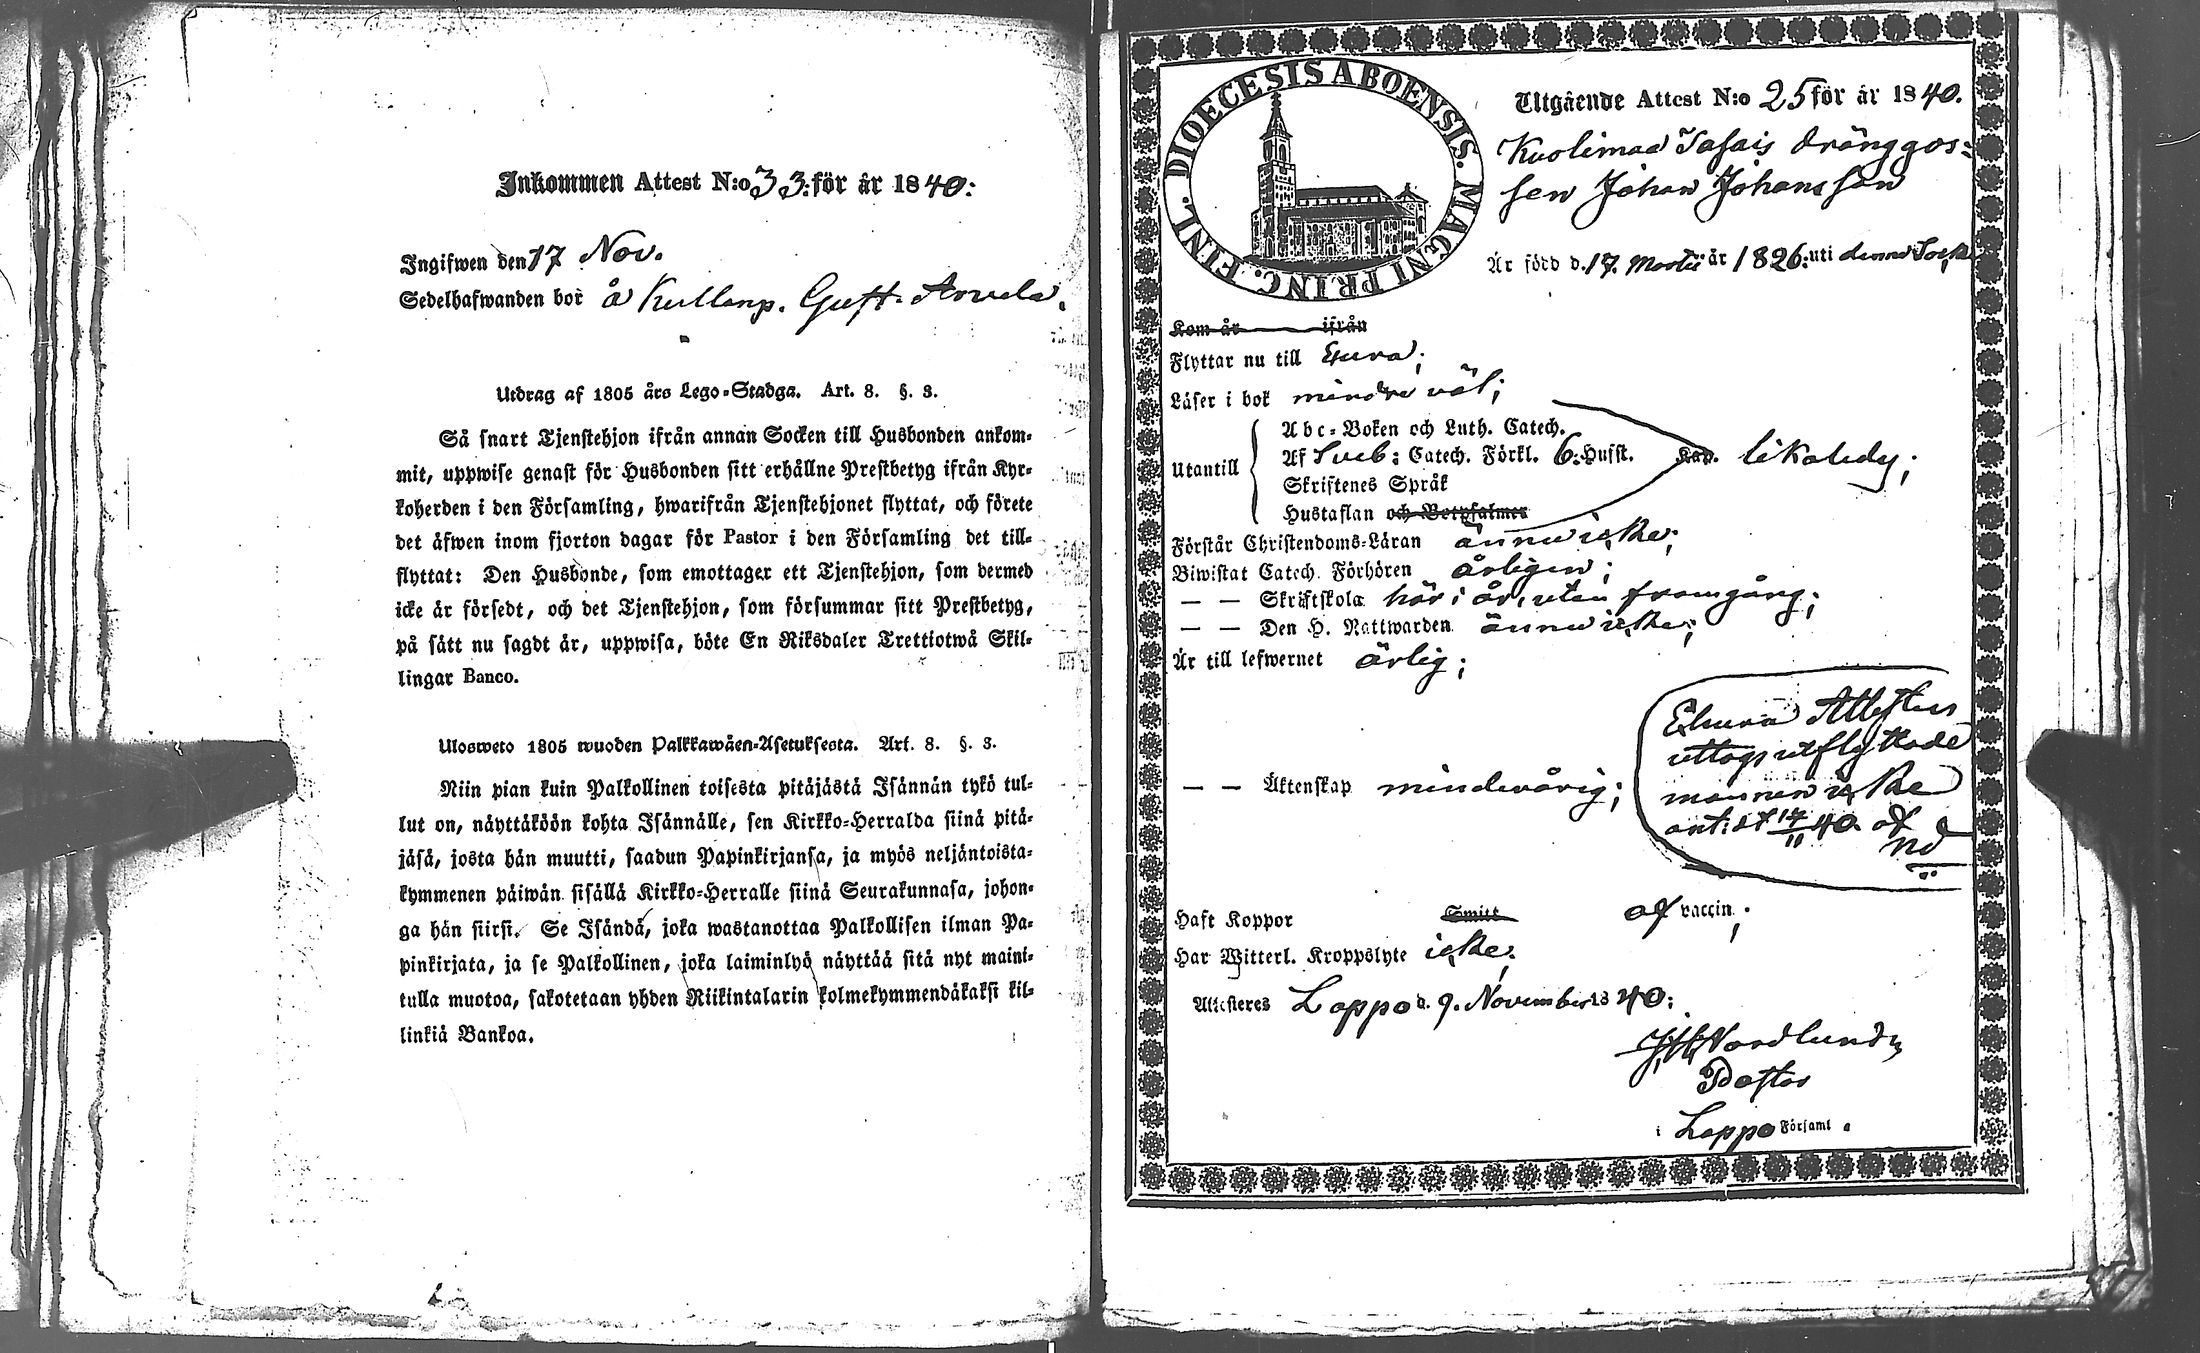 Inkommen Attest N:o 33: för år 1840:
Ingifwen den 17 Nov.
Sedelhafwanden bor å Kullanp. Gust. Arvela.
Utdrag af 1805 års Lego-Stadga. Art. 8. §. 3.
Så snart Tjenstehjon ifrån annan Socken till Husbonden ankom-
mit, uppwise genast för Husbonden sitt erhållne Prestbetyg ifrån Kyr-
koherden i den Församling, hwarifrån Tjenstehjonet flyttat, och förete
det äfwen inom fjorton dagar för Pastor i den Församling det till-
flyttat: Den Husbonde, som emottager ett Tjenstehjon, som dermed
icke är försedt, och det Tjenstehjon, som försummar sitt Prestbetyg,
på sätt nu sagdt är, uppwisa, böte En Riksdaler Trettiotwå Skil-
lingar Banco.
Ulosweto 1805 wuoden Palkkawäen-Asetuksesta. Art. 8. §. 3.
Niin pian kuin Palkollinen toisesta pitäjästä Isännän tykö tul-
lut on, näyttäköön kohta Isännälle, sen Kirkko-Herralda siinä pitä-
jäsä, josta hän muutti, saadun Papinkirjansa, ja myös neljäntoista-
kymmenen päiwän sisällä Kirkko-Herralle siinä Seurakunnasa, johon-
ga hän siirsi. Se Isändä, joka wastanottaa Palkollisen ilman Pa-
pinkirjata, ja se Palkollinen, joka laiminlyö näyttää sitä nyt maini-
tulla muotoa, sakotetaan yhden Riikintalarin kolmekymmendäkaksi kil-
linkiä Bankoa.
DIOECESIS ABOENSIS. MAGNI PRINC. FINL.
Utgående Attest N:o 25 för år 1840.
Kuolimaa Tasais dränggos-
sen Johan Johansson
Är född d. 17. Martii år 1826: uti denna Sock
Kom år ifrån
Flyttar nu till Eura;
Läser i bok mindre väl;
Utantill
Abc-Boken och Luth. Catech.
Af Sveb: Catech. Förkl. 6: Hufst. Kap. likaledes;
Skriftenes Språk
Hustaflan och Botpsalmer
Förstår Christendoms-Läran ännu icke;
Biwistat Catech. Förhören årligen;
— — Skriftskola här i år, utan framgång;
— — Den H. Nattwarden ännu icke;
Är till lefwernet ärlig;
— — Äktenskap minderårig;
Attesten
uttogs utflyttade
mannen icke
17/11 40. af
Haft Koppor Smitt af vaccin;
Har Witterl. Kroppslyte icke.
Attesteres Lappo d. 9. November 1840:
Nordlund
Pastor
i Lappo Församl.